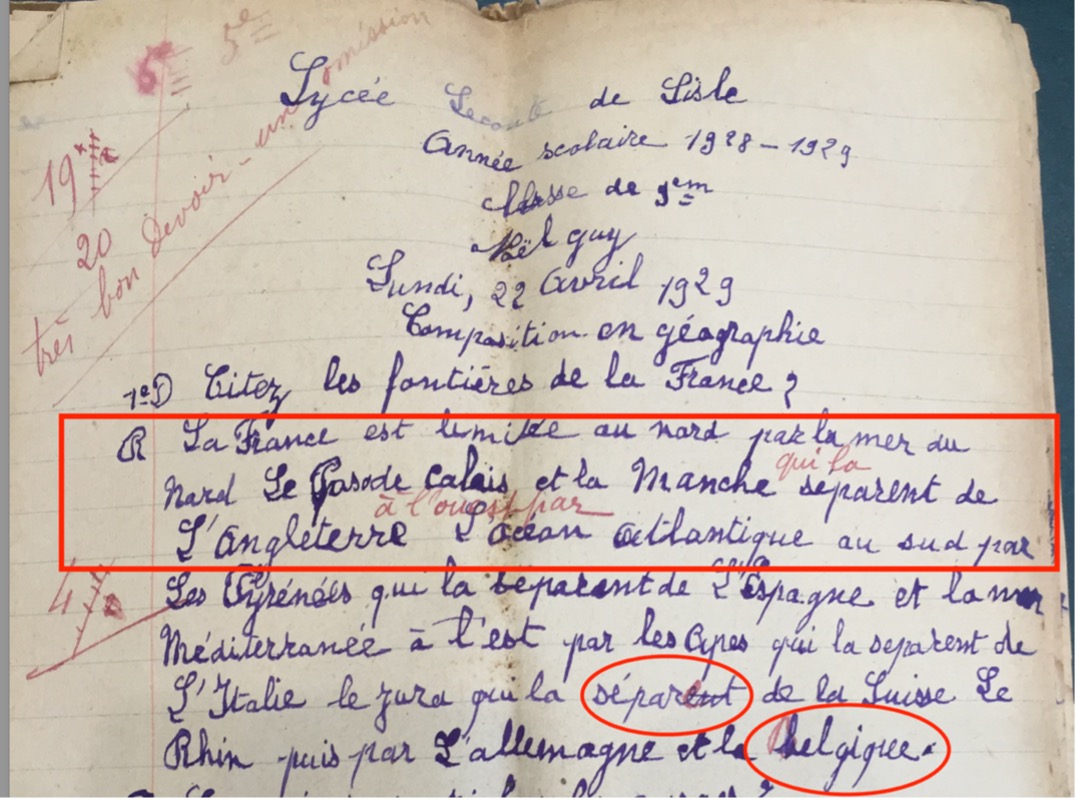 5e
omission
Lycée Leconte de Lisle
Année scolaire 1928-1929
19
Classe de em
20
guy
très bon devoir - un
Lundi, 22 Avril 1929
Composition en géographie
1º) Citez les fontières de la France?
R La France est limitée au nord par la mer du
qui la
Nord Le Pas de Calais et la Manche separent de
à l'ouest par
L'Angleterre L'océan Atlantique au sud par
4
Les Pyrénées qui la separent de L'Espagne et la mer
Méditerranée à l'est par les Apes qui la separent de
L'Italie le jura qui la séparent de la Suisse Le
Rhin puis par L'allemagne et la belgique.